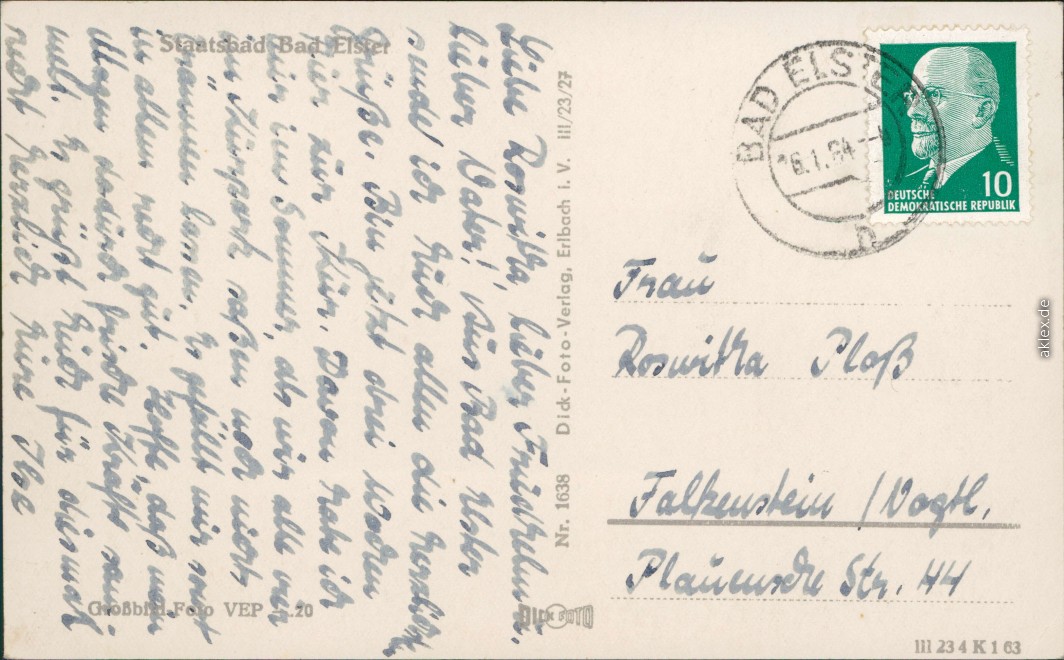 Staatsbad Bad Elster
Liebe Roswitha, lieber Friedhelm,
lieber Vater! Aus Bad Elster
sende ich Euch allen die herzlichst
Grüße. Bin jetzt drei Wochen
hier zur Kur. Davon habe ich
Euch im Sommer, als wir alle ver
im Kurpark saßen noch nicht
ahnen lassen. Es gefällt mir sonst
in allem recht gut. Hoffe, daß mein
Magen dadurch frische Kraft sam
melt. Es grüßt Euch für diesmal
recht herzlich Eure Ilse
Großbild-Foto VEP 20
Nr. 1638 Dick-Foto-Verlag, Erlbach i. V. III/23/27
DICK FOTO
BAD ELSTER
6.1.64
b
10
DEUTSCHE
DEMOKRATISCHE REPUBLIK
Frau
Roswitha Plaß
Falkenstein / Vogtl.
Plauensche Str. 44
III 23 4 K 1 63
aklex.de